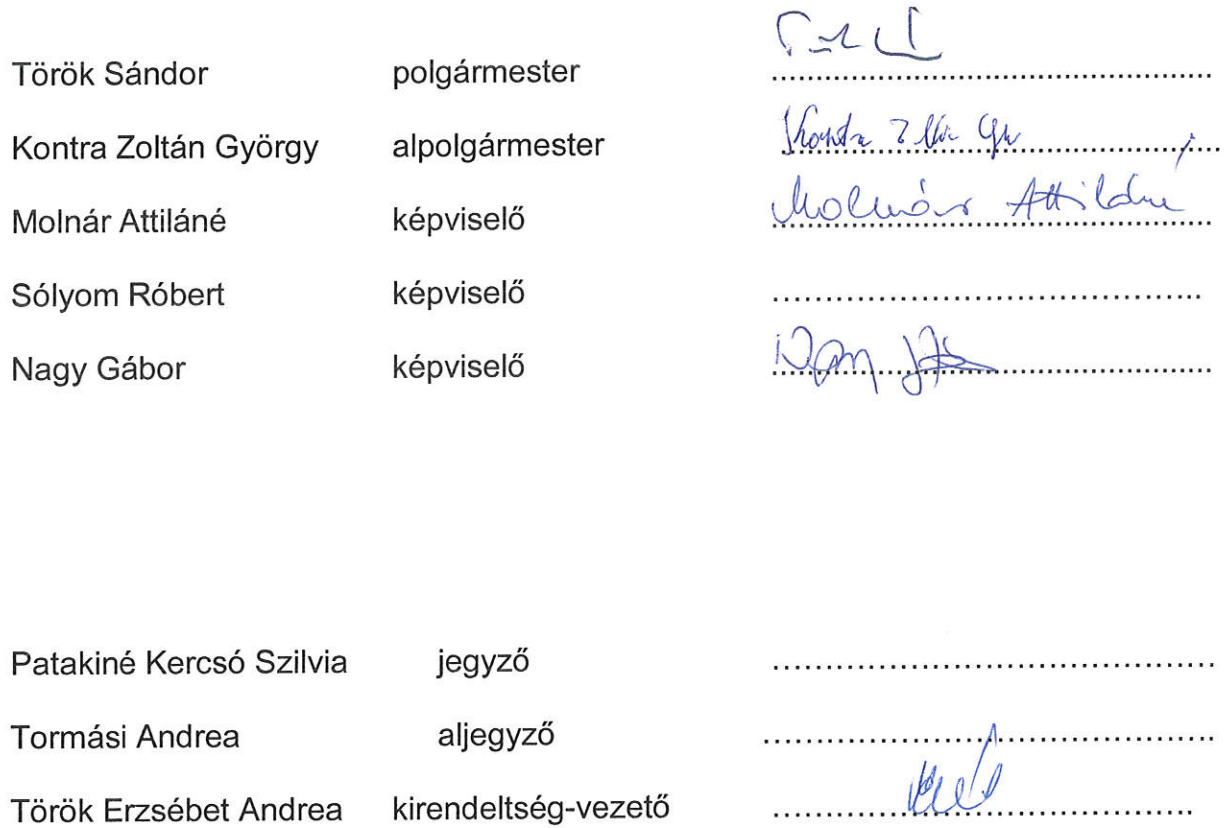 Török Sándor polgármester ........................................
Kontra Zoltán György alpolgármester Kontra ........................................
Molnár Attiláné képviselő Molnár Attiláné ........................................
Sólyom Róbert képviselő ........................................
Nagy Gábor képviselő Nagy ........................................
Patakiné Kercsó Szilvia jegyző ........................................
Tormási Andrea aljegyző ........................................
Török Erzsébet Andrea kirendeltség-vezető ........................................